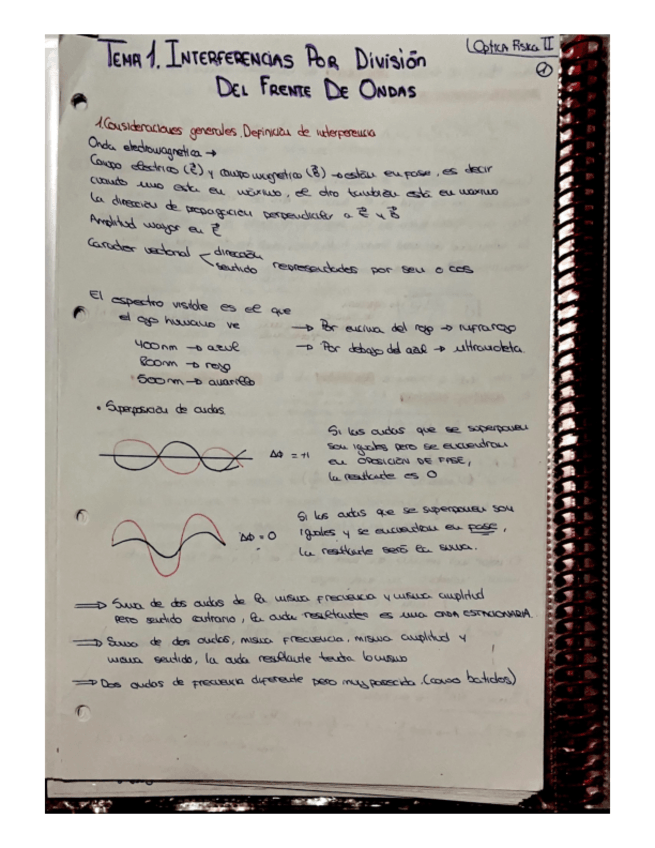 Optica Física II
1
TEMA 1. INTERFERENCIAS POR DIVISIÓN
DEL FRENTE DE ONDAS
1. Consideraciones generales. Definición de interferencia
Onda electromagnetica →
Campo eléctrico (E) y campo magnetico (B) → están en fase, es decir
cuando uno esta en máximo, el otro también está en maximo
La dirección de propagación perpendicular a E y B
Amplitud mayor en E
Caracter vectorial dirección
sentido representados por sen o cos
El espectro visible es el que
el ojo humano ve → Por encima del rojo → infrarrojo
400nm → azul → Por debajo del azul → ultravioleta
800nm → rojo
500nm → amarillo
• Superposición de ondas
Si las ondas que se superponen
son iguales pero se encuentran
ΔΦ = π en OPOSICIÓN DE FASE,
la resultante es 0
Si las ondas que se superponen son
ΔΦ = 0 iguales y se encuentran en fase,
la resultante será la suma.
⇒ Suma de dos ondas de la misma frecuencia y misma amplitud
pero sentido contrario, la onda resultante es una ONDA ESTACIONARIA.
⇒ Suma de dos ondas, misma frecuencia, misma amplitud y
mismo sentido, la onda resultante tendra lo mismo
⇒ Dos ondas de frecuencia diferente pero muy parecida. (como batidos)